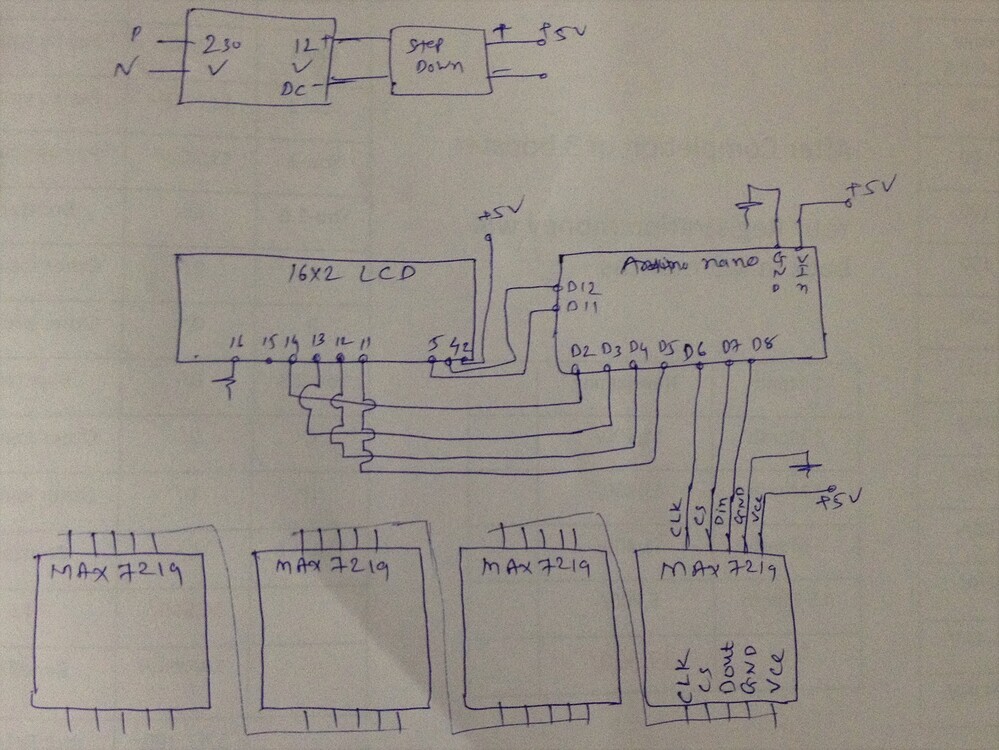 P 230 12 +
N V V
DC -
Step
Down
+ +5V
-
+5V
+5V
16X2 LCD
16 15 14 13 12 11 5 4 2
Arduino nano
GND
Vin
D12
D11
D2 D3 D4 D5 D6 D7 D8
CLK
CS
Din
GND
Vcc
+5V
MAX 7219
MAX 7219
MAX 7219
MAX 7219
CLK
CS
Dout
GND
Vcc